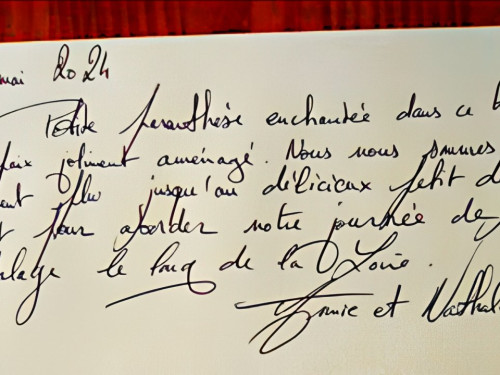 mai 2024
Petite parenthèse enchantée dans ce b
paix joliment aménagé. Nous nous sommes
ent plu jusqu'au délicieux petit d
t pour aborder notre journée de
lage le long de la Loire.
Annie et Nathal